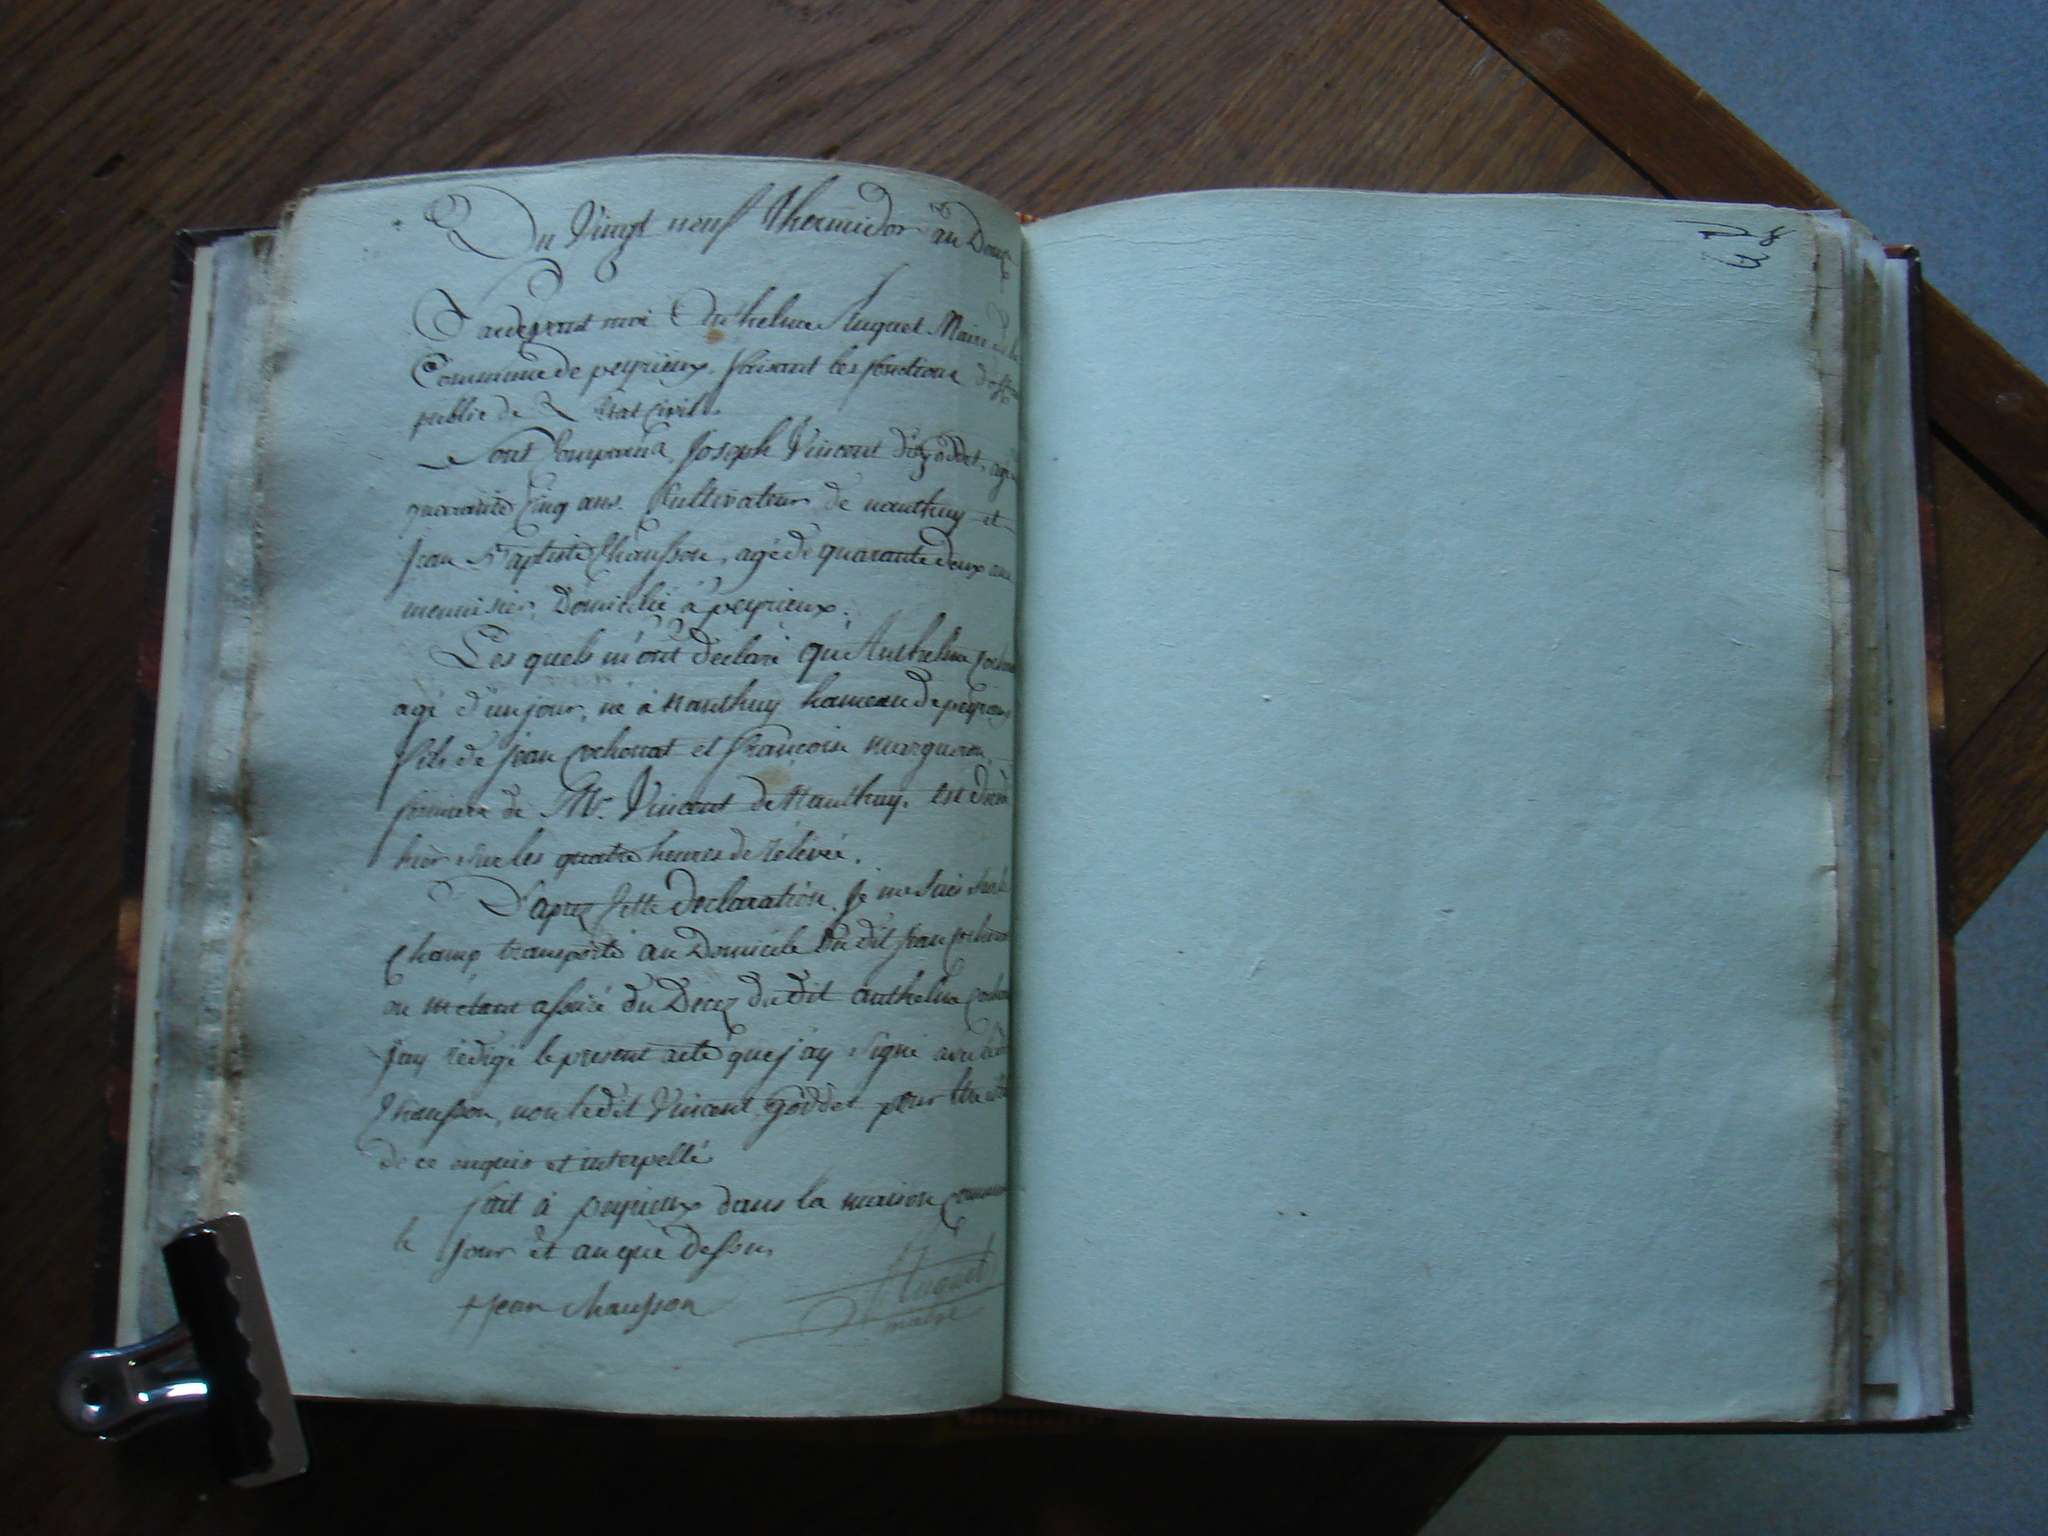 Du Vingt neuf thermidor an Douze
Pardevant moi Anthelme Huguet Maire de la
Commune de peyrieux, faisant les fonctions
public de L'Etat civil.
Sont Comparus Joseph Vincent dit goddet, agé
quarante Cinq ans. Cultivateur de nanthuy et
Jean Baptiste Chausson, agé de quarante deux ans
menuisier, Domicilié à peyrieux.
Les quels m'ont déclaré que Anthelme
agé d'un jour, né à nanthuy hameau de peyrieux
fils de jean Cochonat et françoise
de Mr. Vincent de Nanthuy. est
hier sur les quatre heures de rélévée.
D'aprez Cette declaration, Je me suis
Champ transporté au Domicile du dit jean
ou m'étant assuré du Decez du dit anthelme
j'ay rédigé le present acte que j'ay signé avec
Chausson, non le dit Vincent goddet pour
de ce enquis et interpellé
fait à peyrieux dans la maison Commune
le jour et an que dessus
jean chausson
Huguet
maire